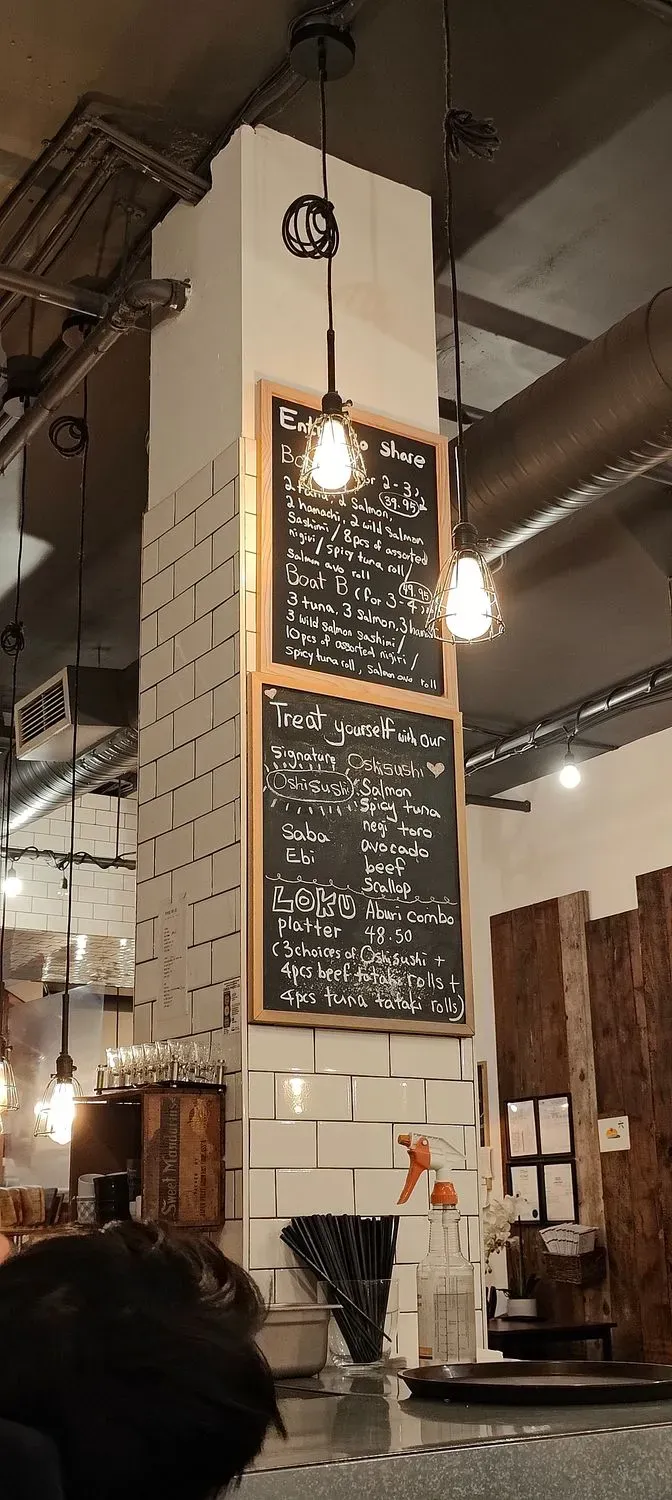 to share
for 2-3)
39.95
2 tuna, 2 Salmon,
2 hamachi, 2 wild Salmon
Sashimi / 8pcs of assorted
nigiri / spicy tuna roll /
Salmon avo roll
Boat B (for 3-4)
49.95
3 tuna, 3 Salmon, 3
3 wild Salmon sashimi /
10pcs of assorted nigiri /
spicy tuna roll, Salmon avo roll
Treat yourself with our
Signature Oshisushi
Oshisushi: Salmon
Spicy tuna
negi toro
Saba avocado
Ebi beef
Scallop
LOKU Aburi combo
platter 48.50
(3 choices of Oshisushi +
4pcs beef tataki rolls +
4pcs tuna tataki rolls)
Sweet Mandarins